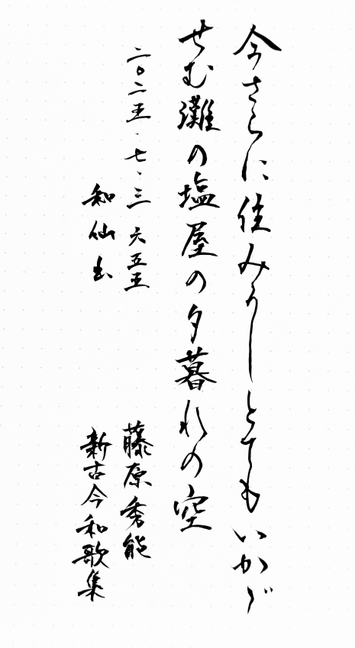 今さらに住みうしとてもいかゞ
せむ灘の塩屋の夕暮れの空
二〇二五・七・三 六五五
和仙書
藤原秀能
新古今和歌集